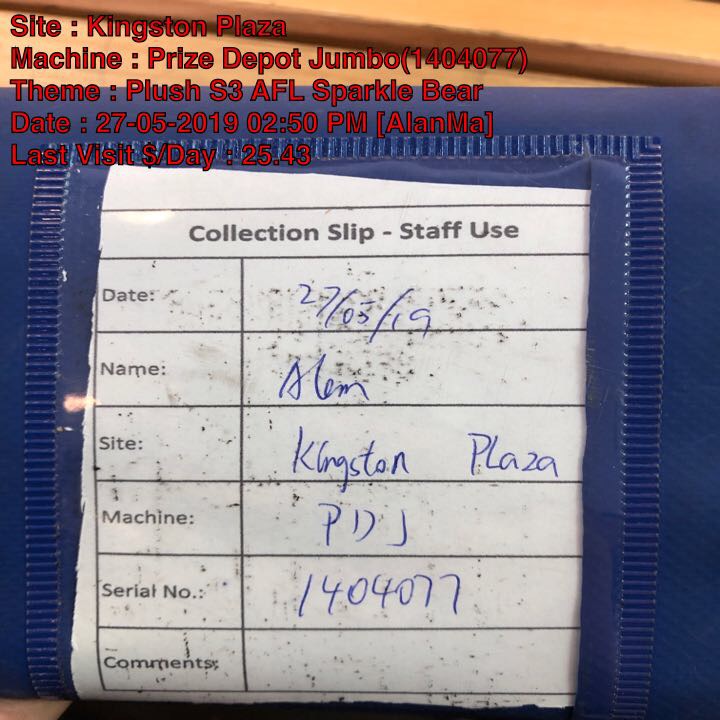 Site : Kingston Plaza
Machine : Prize Depot Jumbo(1404077)
Theme : Plush S3 AFL Sparkle Bear
Date : 27-05-2019 02:50 PM [AlanMa]
Last Visit $/Day : 25.43
Collection Slip - Staff Use
Date: 27/05/19
Name: Alan
Site: Kingston Plaza
Machine: PDJ
Serial No.: 1404077
Comments: